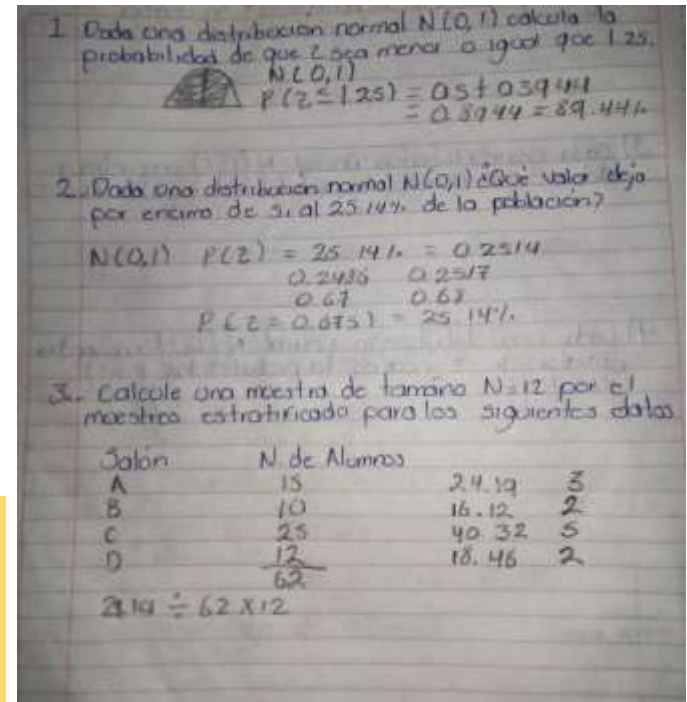 1 Dada una distribucion normal N(0,1) calcula la
probabilidad de que Z sea menor o igual que 1.25.
N(0,1)
P(Z≤1.25) = 0.5+0.3944
= 0.8944 = 89.44%
2. Dada una distribucion normal N(0,1) ¿Qué valor deja
por encima de si al 25.14% de la población?
N(0,1) P(Z) = 25.14% = 0.2514
0.2486 0.2517
0.67 0.68
P(Z=0.675) = 25.14%
3. Calcule una muestra de tamaño N=12 por el
muestreo estratificado para los siguientes datos
Salón N. de Alumnos
A 15 24.19 3
B 10 16.12 2
C 25 40.32 5
D 12 18.46 2
62
÷ 62 x12